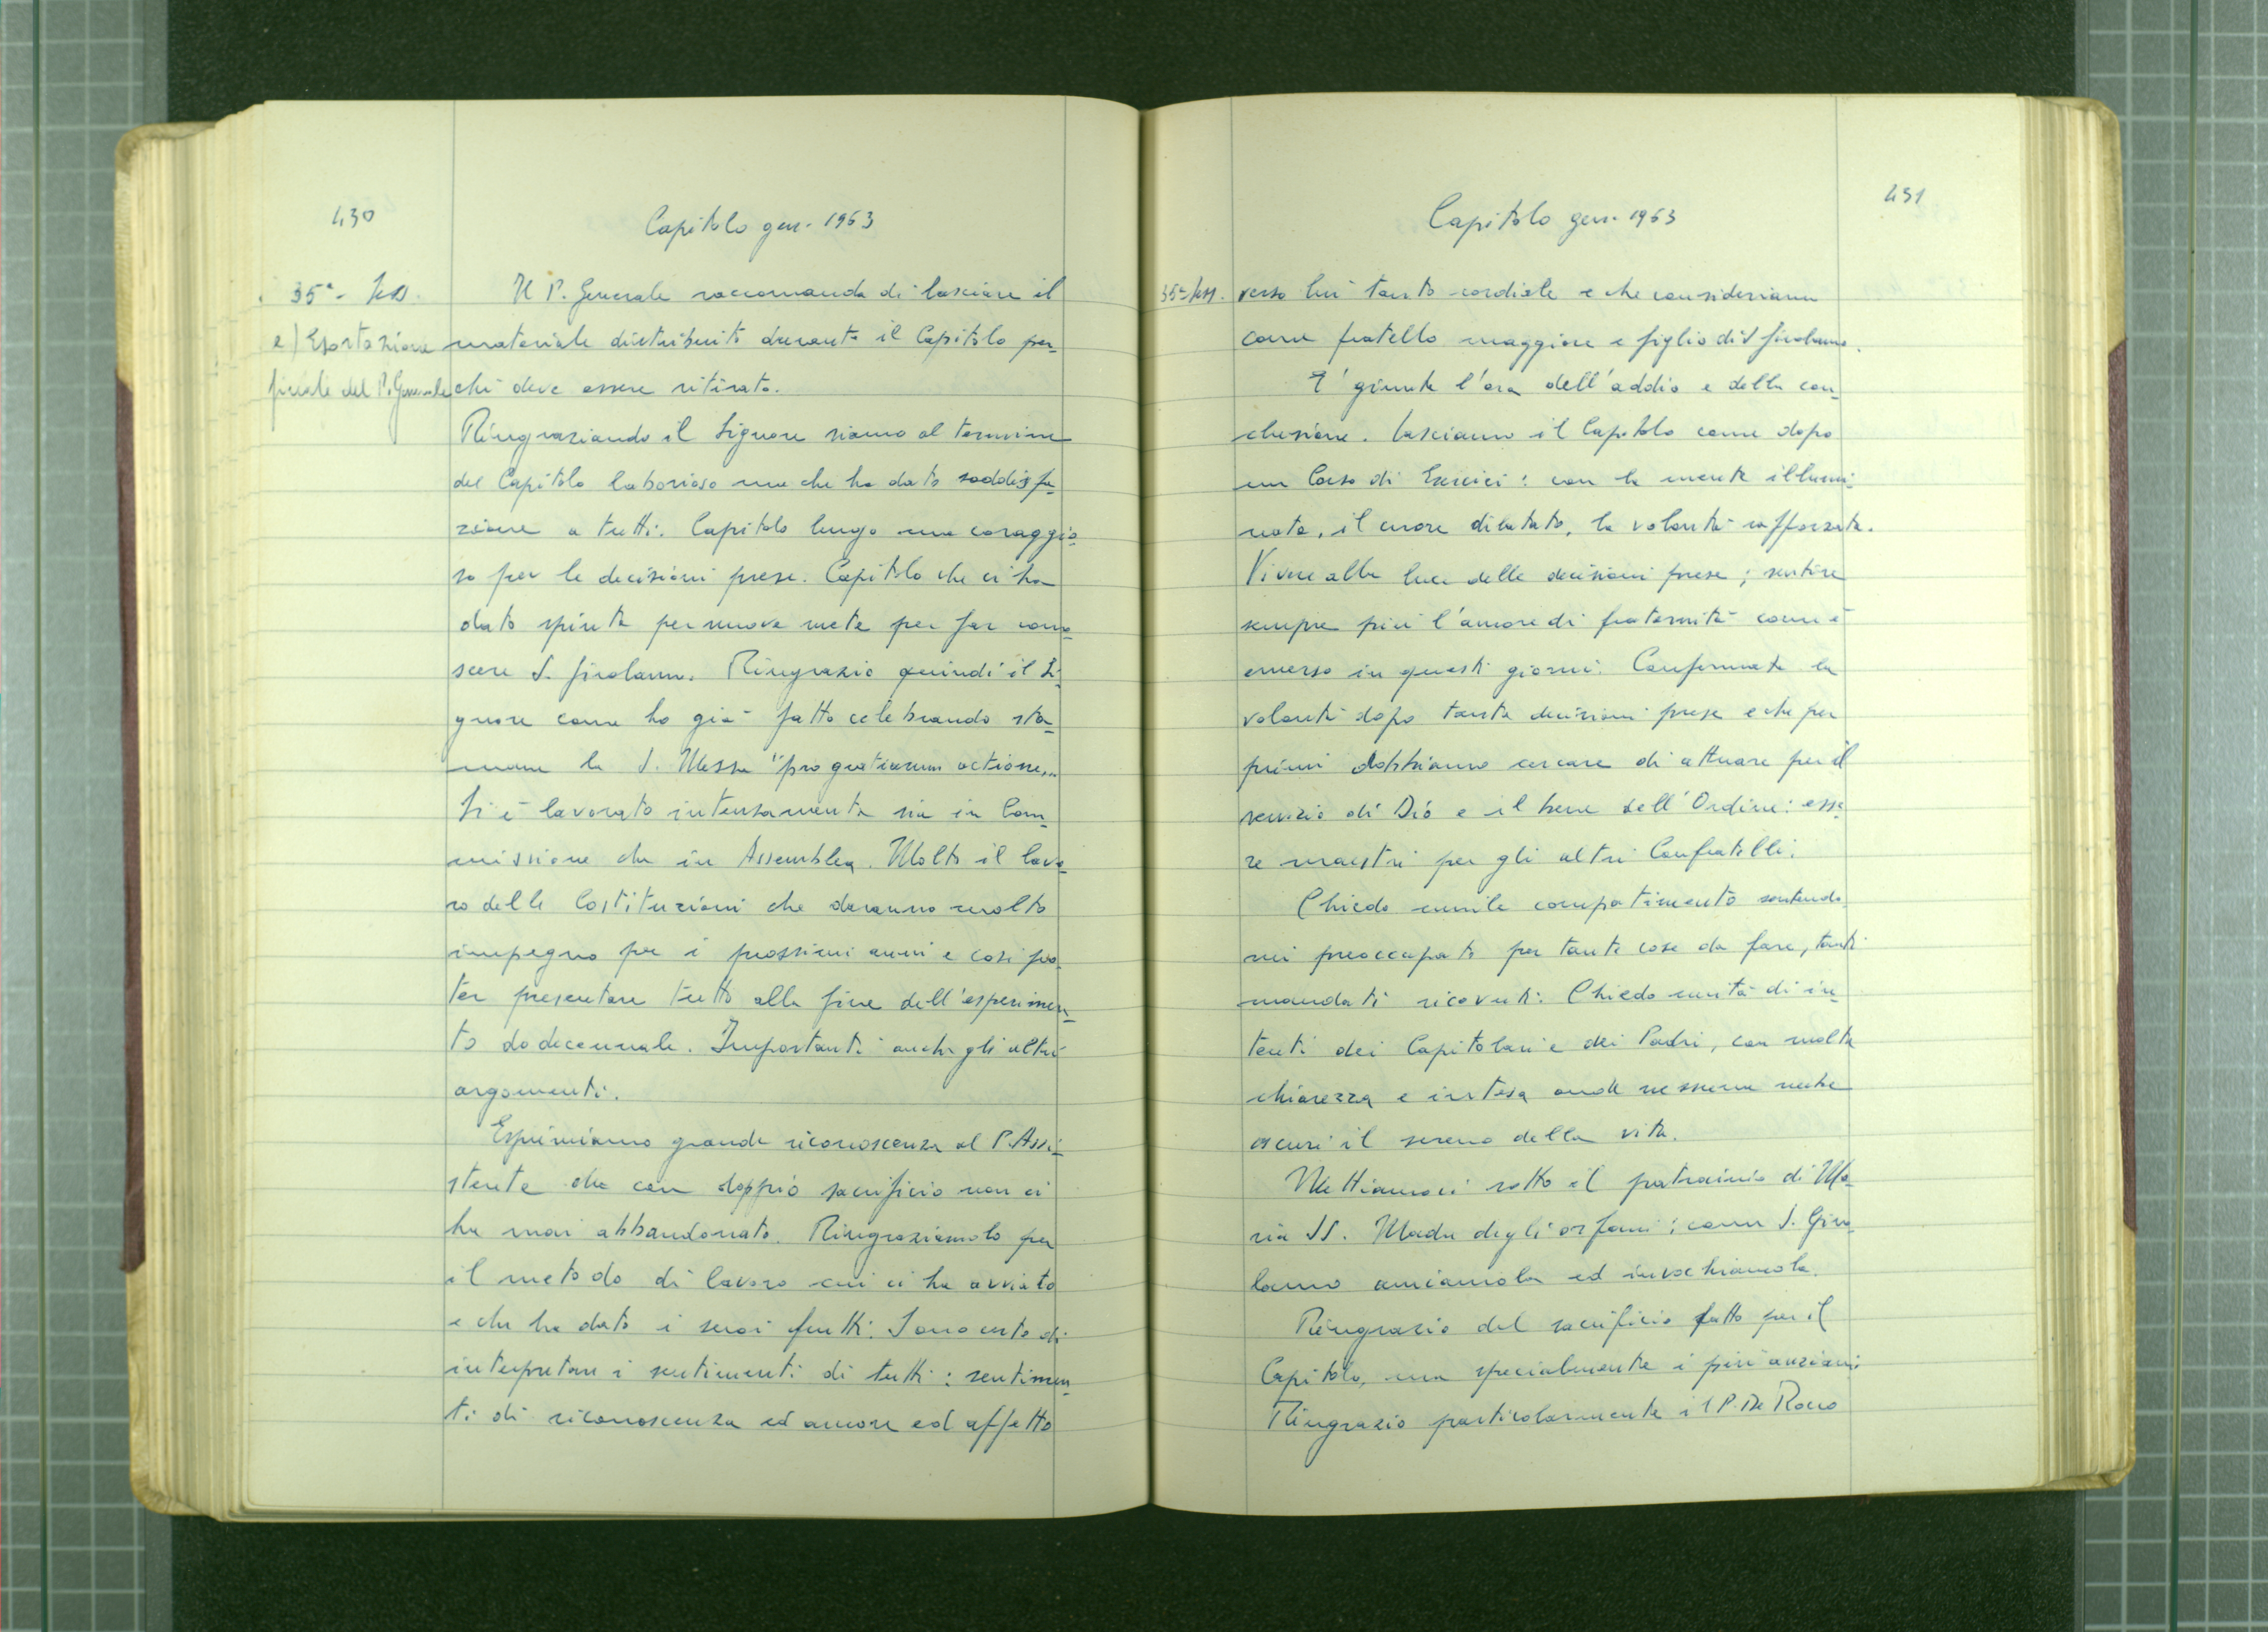 430
Capitolo gen. 1963
35ª - Sess.
e) Esortazione
finale del P. Generale
Il P. Generale raccomanda di lasciare il
materiale distribuito durante il Capitolo per-
chè deve essere ritirato.
Ringraziando il Signore siamo al termine
del Capitolo laborioso ma che ha dato soddisfa-
zione a tutti. Capitolo lungo ma coraggio-
so per le decisioni prese. Capitolo che ci ha
dato spinta per nuove mete per far cono-
scere S. Girolamo. Ringrazio quindi il Si-
gnore come ho già fatto celebrando sta-
mane la S. Messa "pro gratiarum actione"
Si è lavorato intensamente sia in Com-
missione che in Assemblea. Molto il lavo-
ro delle Costituzioni che daranno molto
impegno per i prossimi anni e così po-
ter presentare tutto alla fine dell'esperimen-
to dodecennale. Importanti anche gli altri
argomenti.
Esprimiamo grande riconoscenza al P. Assi-
stente che con doppio sacrificio non ci
ha mai abbandonato. Ringraziamolo per
il metodo di lavoro cui ci ha avviato
e che ha dato i suoi frutti. Sono certo di
interpretare i sentimenti di tutti: sentimen-
ti di riconoscenza ed amore ed affetto
431
Capitolo gen. 1963
35ª Sess.
verso lui tanto cordiale e che consideriamo
come fratello maggiore e figlio di S. Girolamo.
E' giunta l'ora dell'addio e della con-
clusione. Lasciamo il Capitolo come dopo
un Corso di Esercizi: con la mente illumi-
nata, il cuore dilatato, la volontà rafforzata.
Vivere alla luce delle decisioni prese; sentire
sempre più l'amore di fraternità come è
emerso in questi giorni. Confermate la
volontà dopo tante decisioni prese e che per
primi dobbiamo cercare di attuare per il
servizio di Dio e il bene dell'Ordine: esse-
re maestri per gli altri Confratelli.
Chiedo umile compatimento sentendo-
mi preoccupato per tante cose da fare, tanti
mandati ricevuti. Chiedo unità di in-
tenti dei Capitolari e dei Padri, con molta
chiarezza e intesa onde nessuna nube
oscuri il sereno della vita.
Mettiamoci sotto il patrocinio di Ma-
ria SS. Madre degli orfani; come S. Giro-
lamo amiamola ed invochiamola.
Ringrazio del sacrificio fatto per il
Capitolo, ma specialmente i più anziani
Ringrazio particolarmente il P. De Rocco